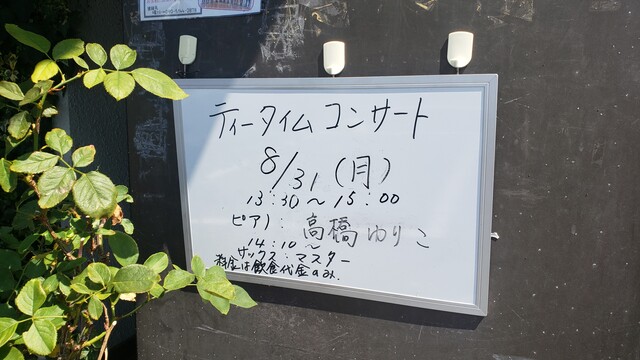 ティータイムコンサート
8/31(月)
13:30〜15:00
ピアノ: 高橋ゆりこ
14:10〜
サックス:マスター
料金は飲食代金のみ.